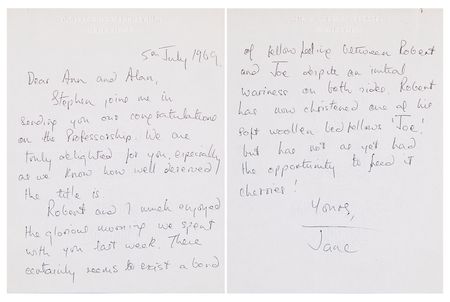 5th July 1969.
Dear Ann and Alan,
Stephen joins me in
sending you our congratulations
on the Professorship. We are
truly delighted for you, especially
as we know how well deserved
the title is.
Robert and I much enjoyed
the glorious morning we spent
with you last week. There
certainly seems to exist a bond
of fellow feeling between Robert
and Joe despite an initial
wariness on both sides. Robert
has now christened one of his
soft woollen bedfellows 'Joe'!
but has not as yet had
the opportunity to feed it
cherries!
Yours,
Jane